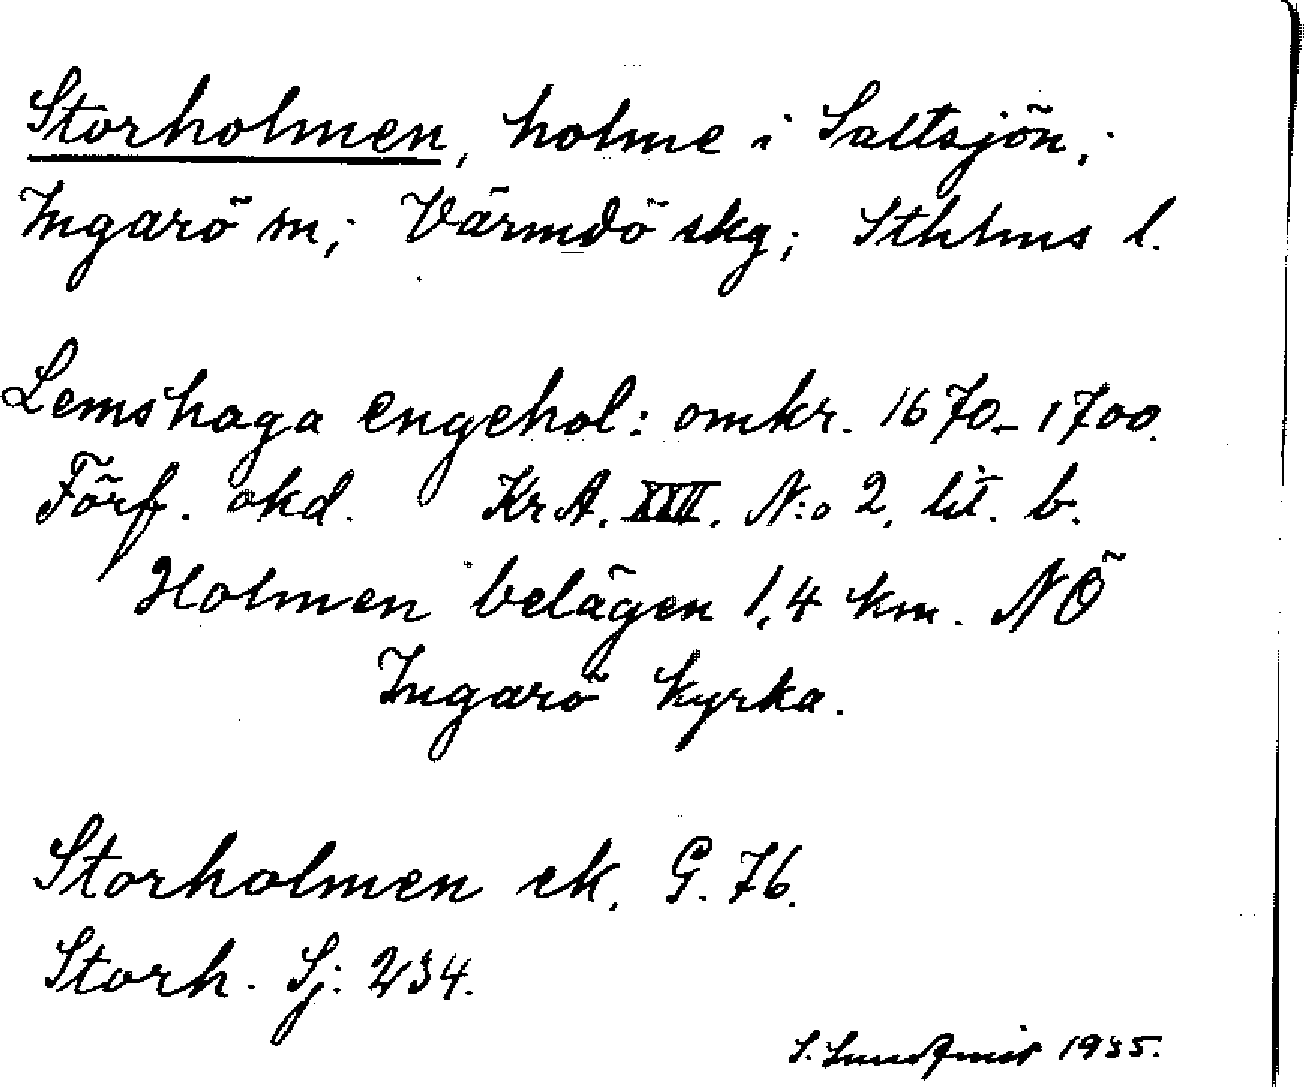 Storholmen, holme i Saltsjön,
Ingarö sn; Värmdö skg; Sthlms l.
Lemshaga engehol: omkr. 1670-1700.
Förf. okd. KrA. XIII. N:o 2, lit. b.
Holmen belägen 1,4 km. NÖ
Ingarö kyrka.
Storholmen ek. G. 76.
Storh. Sj: 234.
S. 1935.